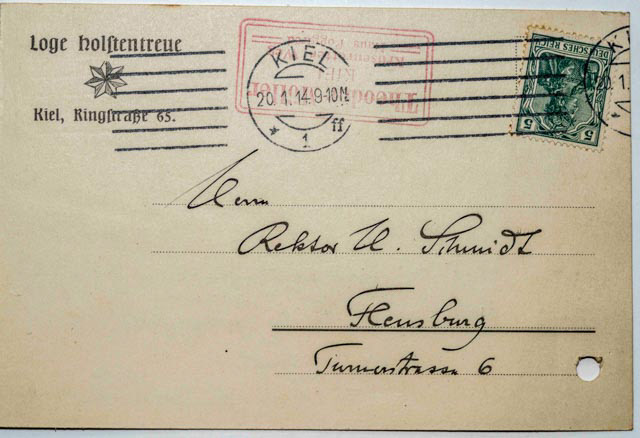 Loge Holstentreue
Kiel, Ringstraße 65.
KIEL
20.1.14.9-10N.
* 1 ff
Theodor
KIEL
DEUTSCHES REICH
5 5
KI
20.1.
Herrn
Rektor H. Schmidt
Flensburg
Turnerstrasse 6